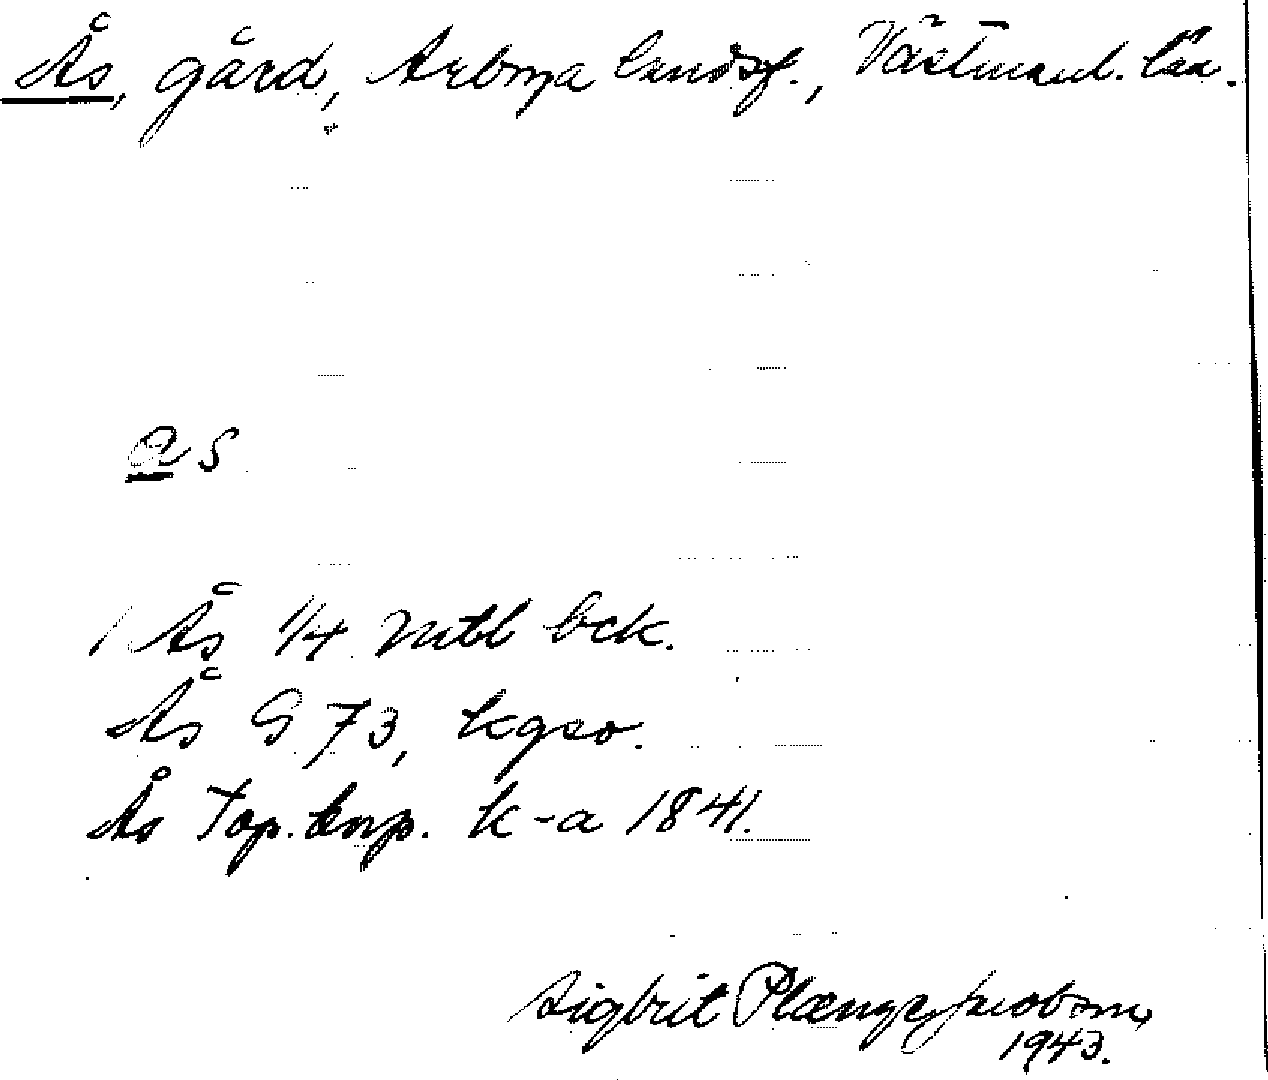 Ås, gård, Arboga landsf., Västmanl. län.
as
1 Ås 1/4 mtl bck.
Ås G 73, kgso.
Ås Top. korp. k-a 1841.
Sigbrit Plænge Jacobson,
1943.